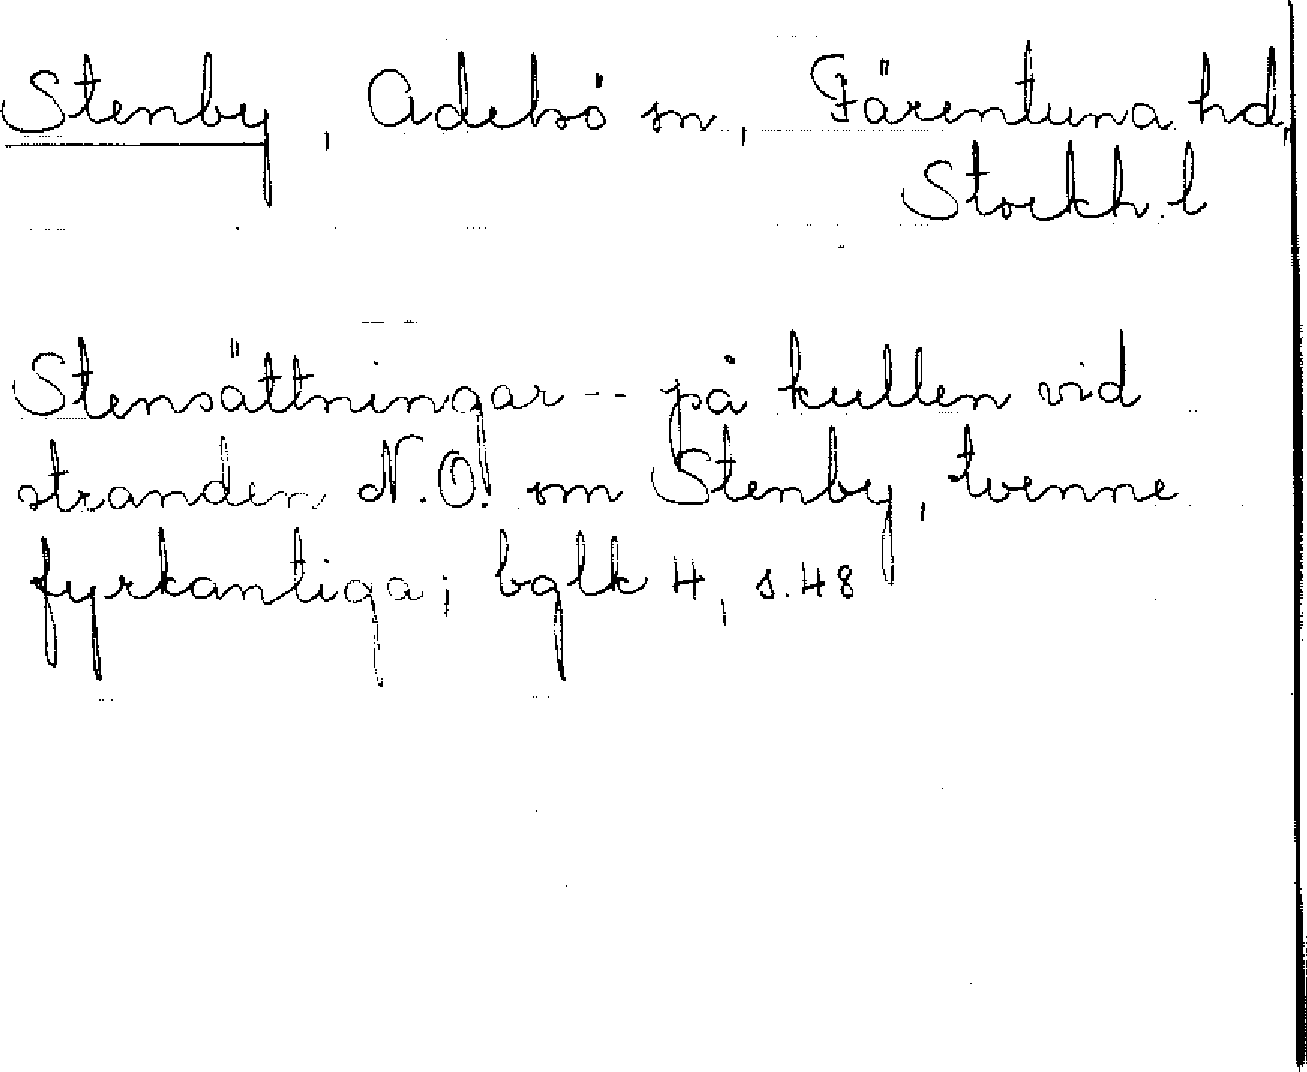 Stenby, Adelsö sn, Färentuna hd,
Stockh. l
Stensättningar -- på kullen vid
stranden N.O. om Stenby, tvenne
fyrkantiga; bglk 4, s. 48